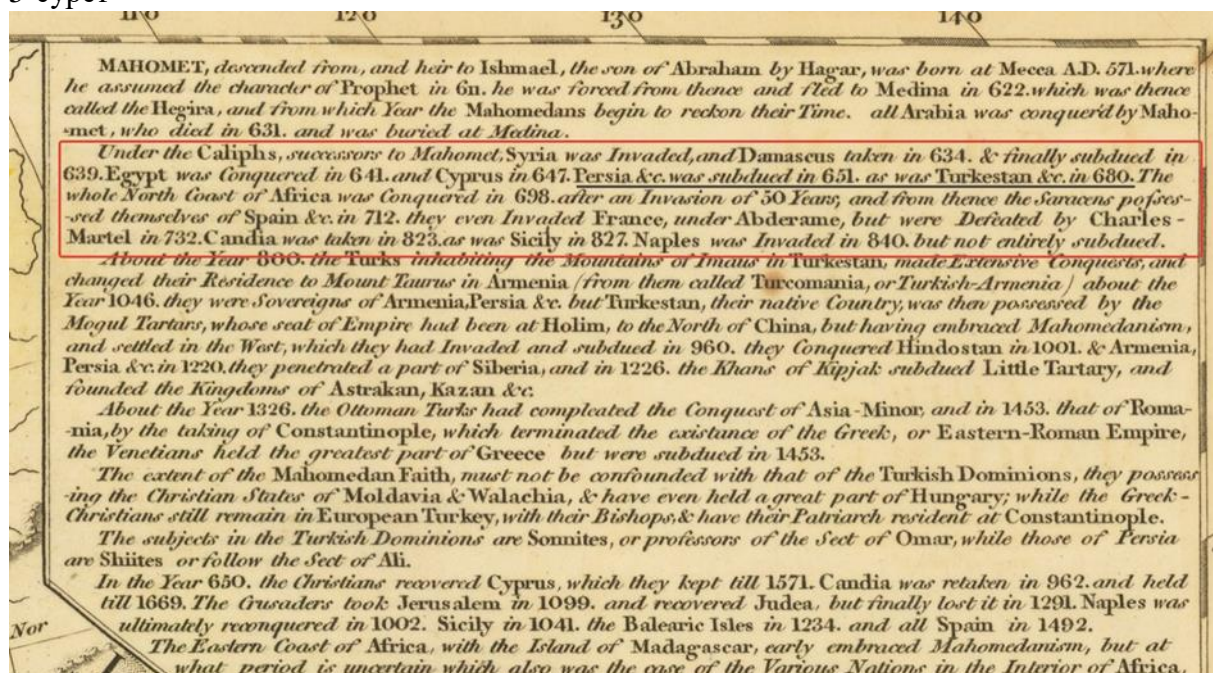 110
120
130
140
MAHOMET, descended from, and heir to Ishmael, the son of Abraham by Hagar, was born at Mecca A.D. 571. where
he assumed the character of Prophet in 6n. he was forced from thence and fled to Medina in 622. which was thence
called the Hegira, and from which Year the Mahomedans begin to reckon their Time. all Arabia was conquer'd by Maho-
-met, who died in 631. and was buried at Medina.
Under the Caliphs, successors to Mahomet, Syria was Invaded, and Damascus taken in 634. & finally subdued in
639. Egypt was Conquered in 641. and Cyprus in 647. Persia &c. was subdued in 651. as was Turkestan &c. in 680. The
whole North Coast of Africa was Conquered in 698. after an Invasion of 50 Years, and from thence the Saracens possess-
-sed themselves of Spain &c. in 712. they even Invaded France, under Abderame, but were Defeated by Charles-
Martel in 732. Candia was taken in 823. as was Sicily in 827. Naples was Invaded in 840. but not entirely subdued.
About the Year 800. the Turks inhabiting the Mountains of Imaus in Turkestan, made Extensive Conquests, and
changed their Residence to Mount Taurus in Armenia (from them called Turcomania, or Turkish-Armenia) about the
Year 1046. they were Sovereigns of Armenia, Persia &c. but Turkestan, their native Country, was then possessed by the
Mogul Tartars, whose seat of Empire had been at Holim, to the North of China, but having embraced Mahomedanism,
and settled in the West, which they had Invaded and subdued in 960. they Conquered Hindostan in 1001. & Armenia,
Persia &c. in 1220. they penetrated a part of Siberia, and in 1226. the Khans of Kipjak subdued Little Tartary, and
founded the Kingdoms of Astrakan, Kazan &c.
About the Year 1326. the Ottoman Turks had compleated the Conquest of Asia-Minor, and in 1453. that of Roma-
-nia, by the taking of Constantinople, which terminated the existance of the Greek, or Eastern-Roman Empire,
the Venetians held the greatest part of Greece but were subdued in 1453.
The extent of the Mahomedan Faith, must not be confounded with that of the Turkish Dominions, they possess
-ing the Christian States of Moldavia & Walachia, & have even held a great part of Hungary; while the Greek-
Christians still remain in European Turkey, with their Bishops, & have their Patriarch resident at Constantinople.
The subjects in the Turkish Dominions are Sonnites, or professors of the Sect of Omar, while those of Persia
are Shiites or follow the Sect of Ali.
In the Year 650. the Christians recovered Cyprus, which they kept till 1571. Candia was retaken in 962. and held
till 1669. The Crusaders took Jerusalem in 1099. and recovered Judea, but finally lost it in 1291. Naples was
ultimately reconquered in 1002. Sicily in 1041. the Balearic Isles in 1234. and all Spain in 1492.
Nor
The Eastern Coast of Africa, with the Island of Madagascar, early embraced Mahomedanism, but at
what period is uncertain which also was the case of the Various Nations in the Interior of Africa,